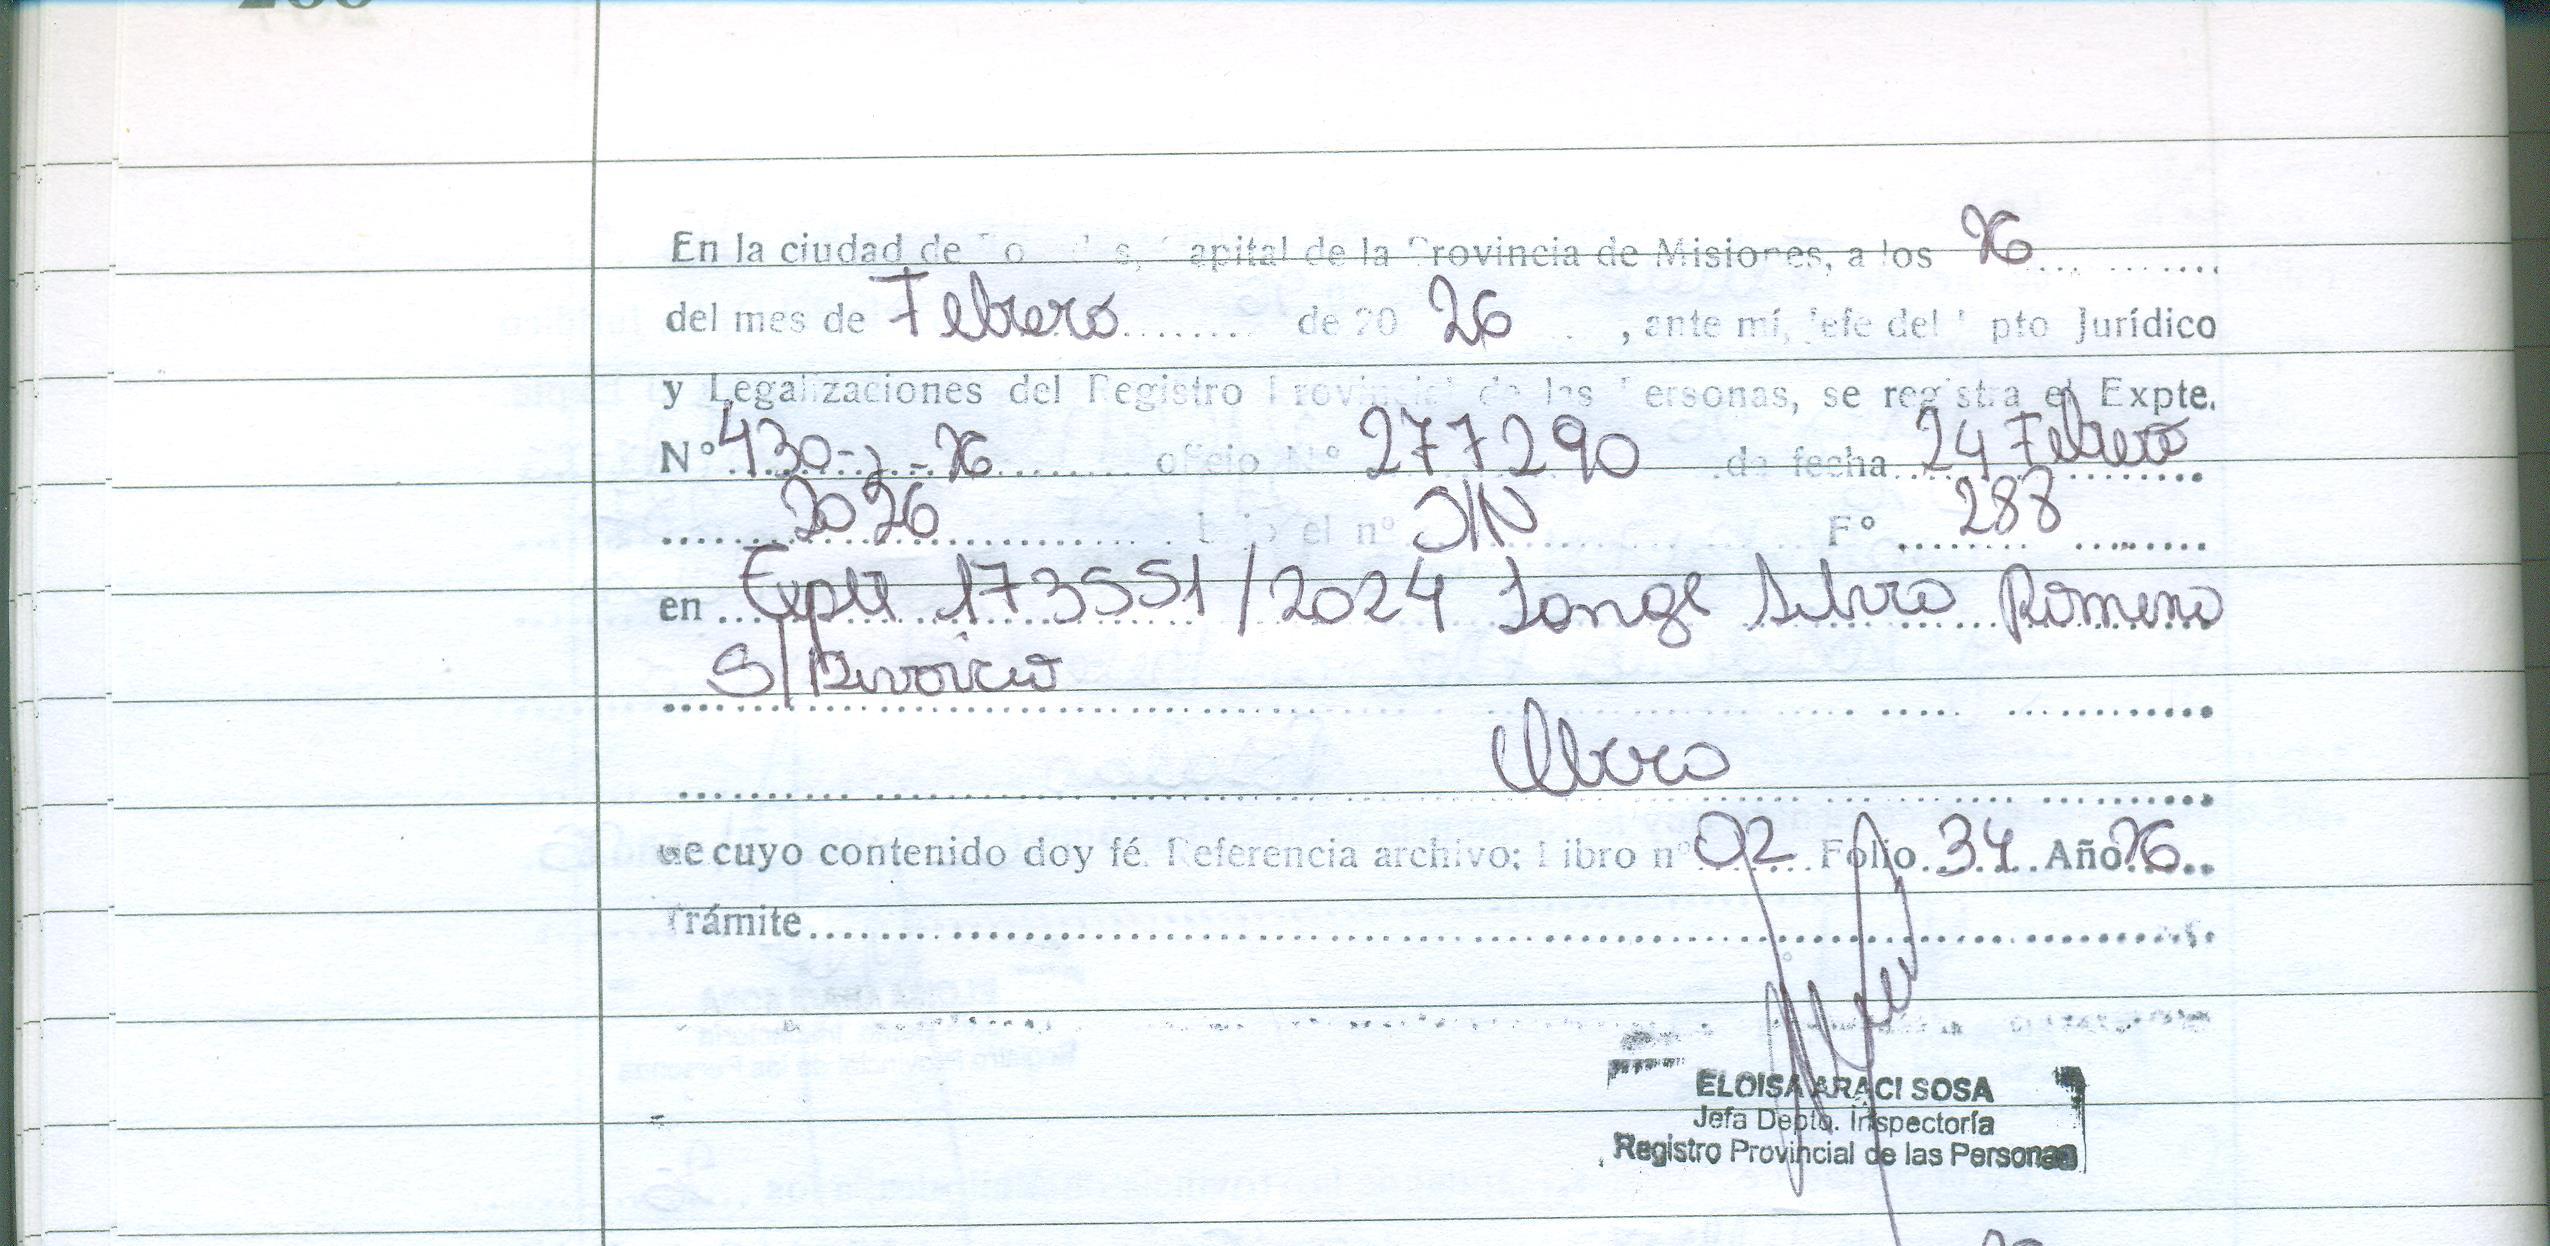 En la ciudad de Posadas, Capital de la Provincia de Misiones, a los 26
del mes de Febrero de 20 26, ante mí, Jefe del Dpto Jurídico
y Legalizaciones del Registro Provincial de las Personas, se registra el Expte.
Nº 430-J-26 oficio Nº 277290 de fecha 24 Febrero
2026 bajo el nº S/N Fº 288
en Expte 173551/2024 Silvia Romero
S/Divorcio
de cuyo contenido doy fé. Referencia archivo: Libro nº 02 Folio 34 Año 26
Trámite
ELOISA ARACI SOSA
Jefa Depto. Inspectoría
Registro Provincial de las Personas